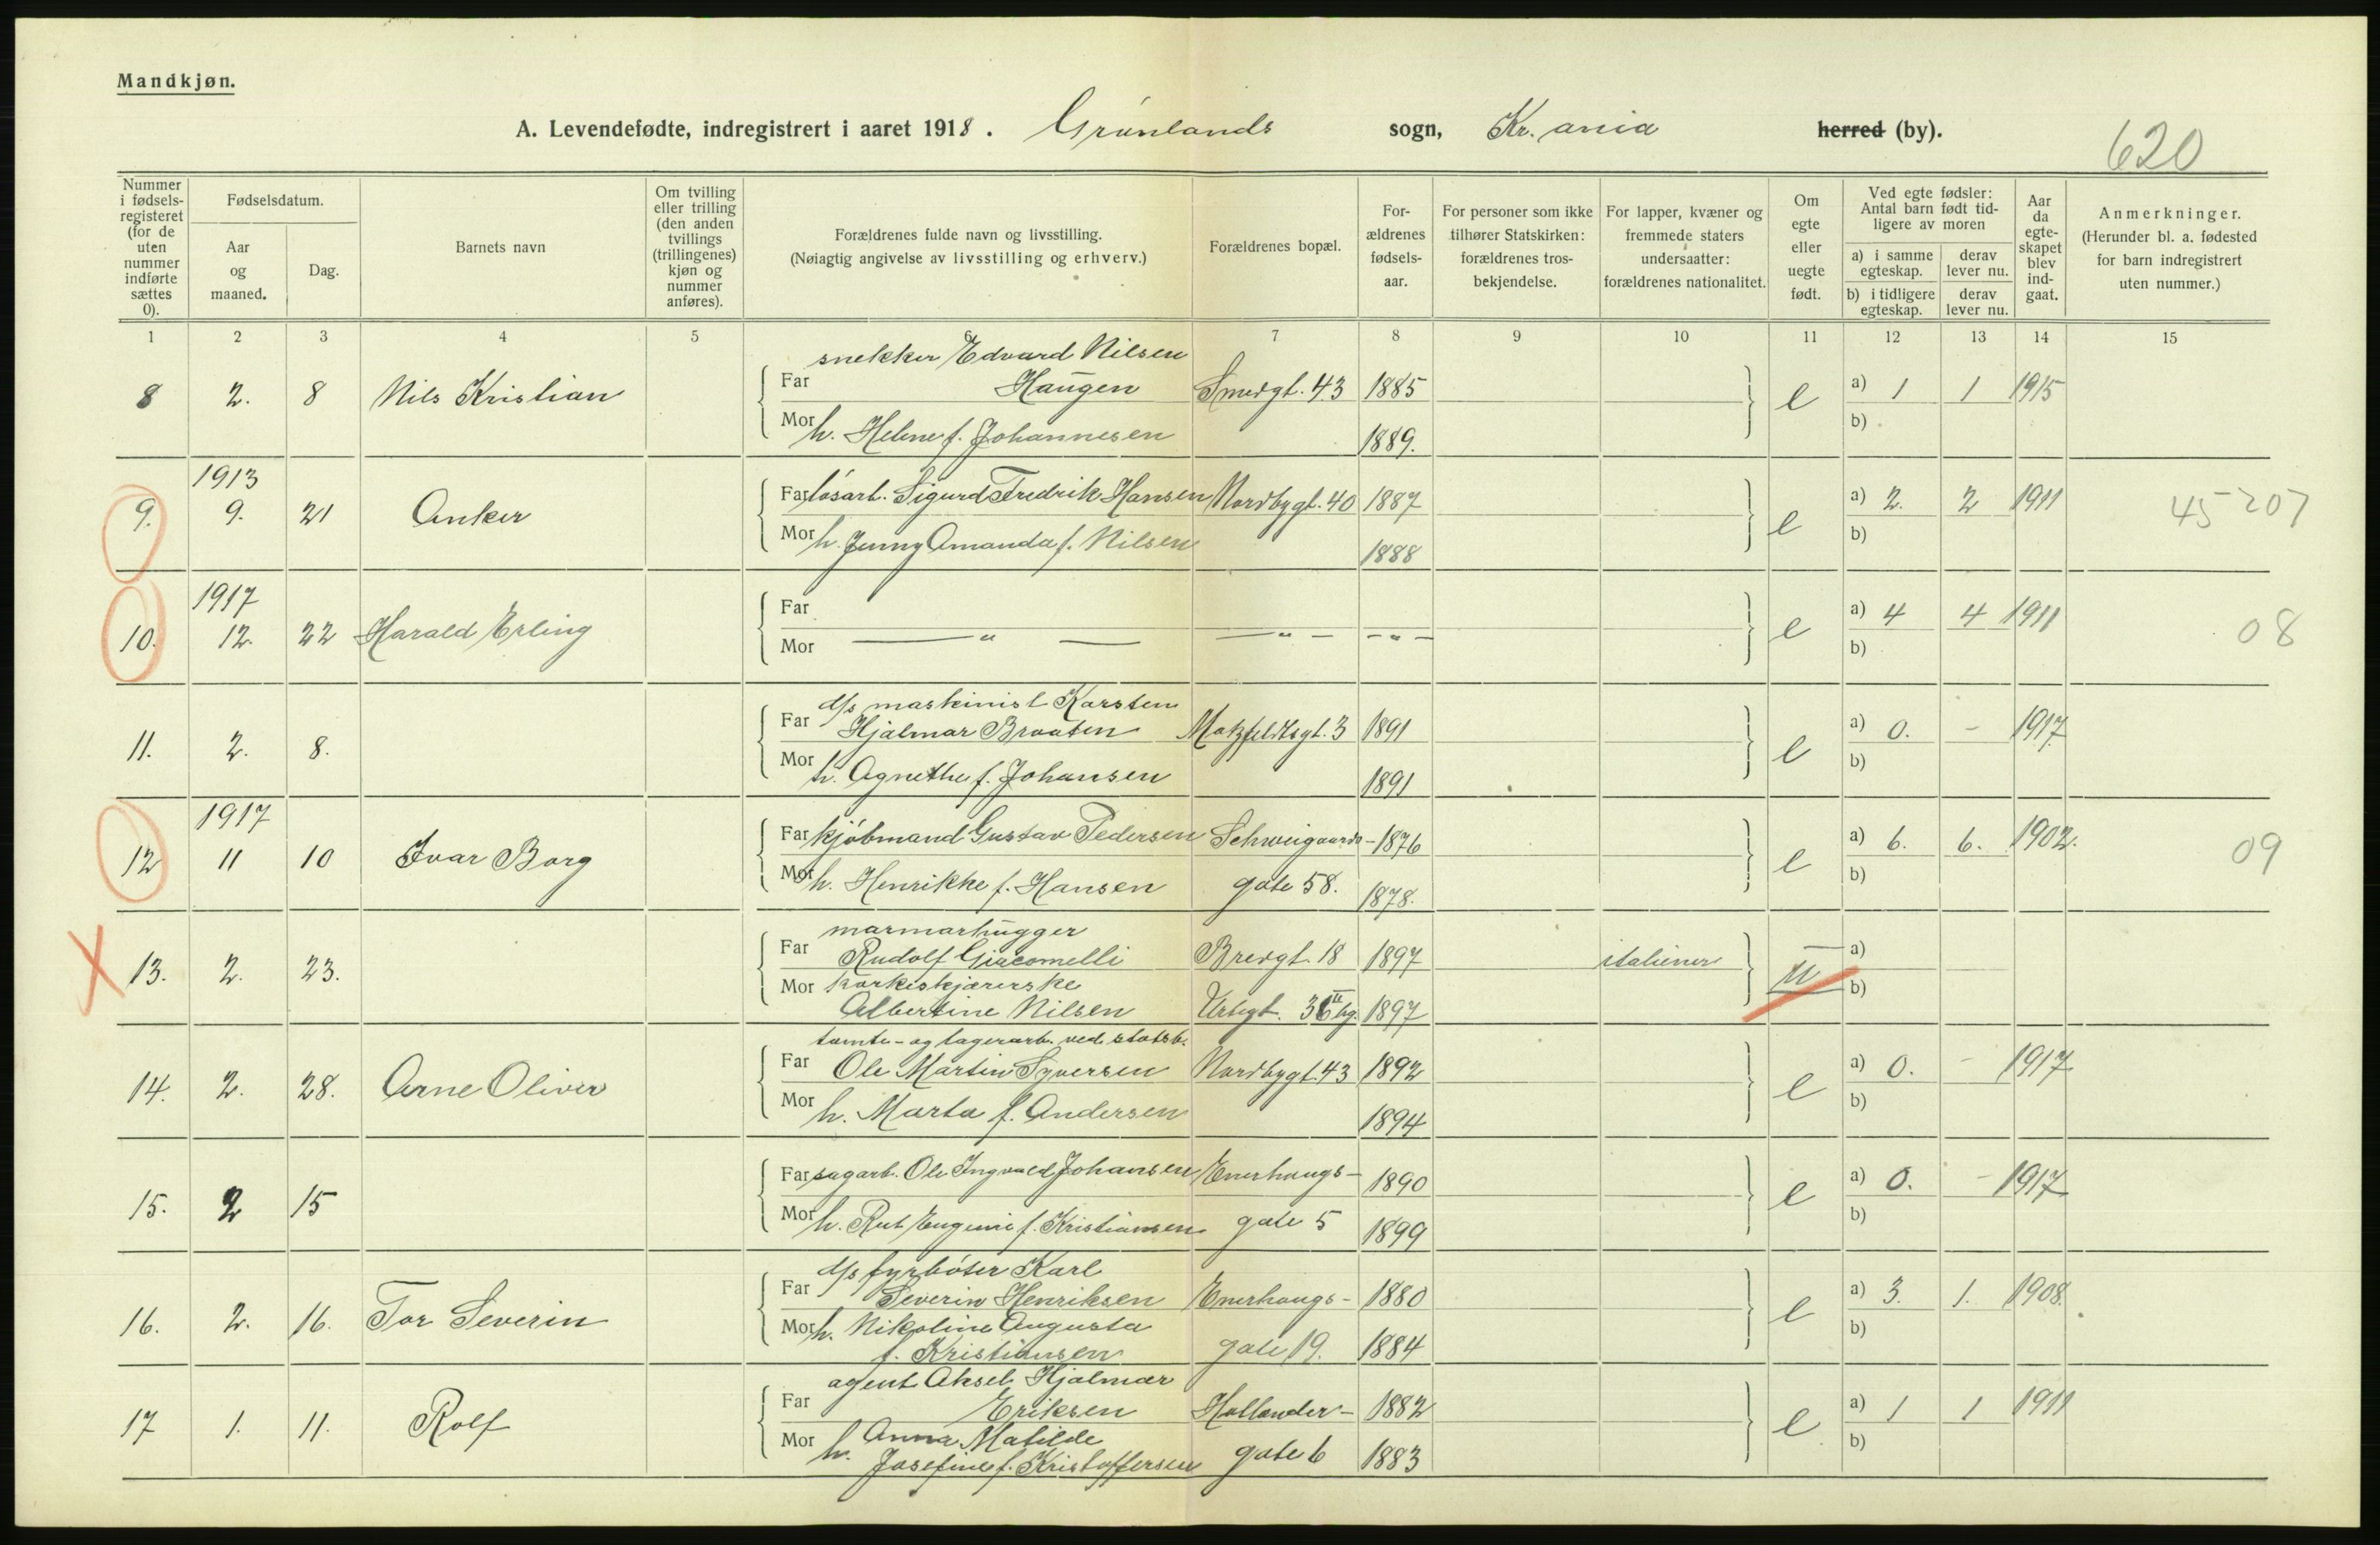 Mandkjøn.
A. Levendefødte, indregistrert i aaret 1918. Grønlands sogn, Kr.ania herred (by).
620
Nummer i fødsels-registeret (for de uten nummer indførte sættes 0).
Fødselsdatum.
Aar og maaned.
Dag.
Barnets navn
Om tvilling eller trilling (den anden tvillings (trillingenes) kjøn og nummer anføres).
Forældrenes fulde navn og livsstilling.
(Nøiagtig angivelse av livsstilling og erhverv.)
Forældrenes bopæl.
For-ældrenes fødsels-aar.
For personer som ikke tilhører Statskirken: forældrenes tros-bekjendelse.
For lapper, kvæner og fremmede staters undersaatter: forældrenes nationalitet.
Om egte eller uegte født.
Ved egte fødsler: Antal barn født tid-ligere av moren
a) i samme egteskap.
derav lever nu.
b) i tidligere egteskap.
derav lever nu.
Aar da egte-skapet blev ind-gaat.
Anmerkninger.
(Herunder bl. a. fødested for barn indregistrert uten nummer.)
1 2 3 4 5 6 7 8 9 10 11 12 13 14 15
snekker Edvard Nilsen
8 2. 8 Nils Kristian Far Haugen Smedgt. 43 1885 e a) 1 1 1915
Mor h. Helene f. Johannesen 1889. b)
1913
9. 9. 21 Anker Far løsarb. Sigurd Fredrik Hansen Nordbygt. 40 1887 e a) 2. 2 1911 45207
Mor h. Jenny Amanda f. Nilsen 1888 b)
1917
10. 12. 22 Harald Erling Far e a) 4 4 1911 08
Mor — " — — " — - " - b)
d/s maskinist Karsten
11. 2. 8. Far Hjalmar Braaten Motzfeldtsgt. 3 1891 e a) 0. - 1917.
Mor h. Agnethe f. Johansen 1891 b)
1917
12 11 10 Ivar Borg Far kjøbmand Gustav Pedersen Schweigaards- 1876 e a) 6. 6. 1902. 09
Mor h. Henrikke f. Hansen gate 58. 1878. b)
marmorhugger
13. 2. 23. Far Rudolf Giacomelli Bredgt. 18 1897 italiener u — a)
Mor korkeskjærerske b)
Albertine Nilsen Urtegt. 36 II bg. 1897
tomte- og lagerarb. ved statsb.
14. 2. 28. Arne Oliver Far Ole Martin Syversen Nordbygt. 43 1892 e a) 0. - 1917.
Mor h. Marta f. Andersen 1894 b)
15. 2 15 Far sagarb. Ole Ingvald Johansen Enerhaugs- 1890 e a) 0. - 1917
Mor h. Rut Eugenie f. Kristiansen gate 5 1899 b)
d/s fyrbøter Karl
16. 2. 16. Tor Severin Far Severin Henriksen Enerhaugs- 1880 e a) 3. 1. 1908.
Mor h. Nikoline Augusta b)
f. Kristiansen gate 19. 1884
agent Aksel Hjalmar
17 1. 11. Rolf Far Eriksen Hollender- 1882 e a) 1 1 1911
Mor h. Anna Matilde b)
Josefine f. Kristoffersen gate 6 1883